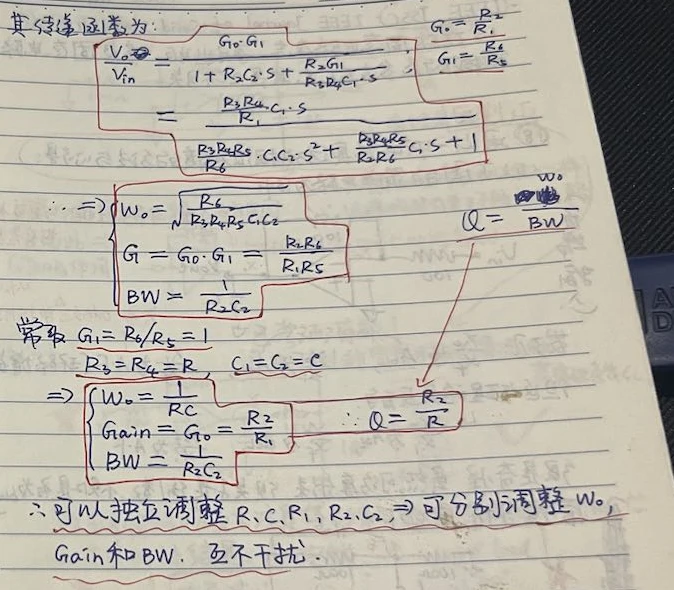 其传递函数为:
V₀/Vin = G₀·G₁ / (1 + R₂C₂·S + R₂G₁/(R₃R₄C₁·S)), G₀ = R₂/R₁
G₁ = R₆/R₅
= (R₃R₄/R₁·C₁·S) / (R₃R₄R₅/R₆·C₁C₂·S² + R₃R₄R₅/(R₂R₆) C₁·S + 1)
∴ ⇒ { W₀ = √(R₆/(R₃R₄R₅C₁C₂))
G = G₀·G₁ = R₂R₆/(R₁R₅)
BW = 1/(R₂C₂)
Q = W₀/BW
常取 G₁ = R₆/R₅ = 1
R₃ = R₄ = R, C₁ = C₂ = C
⇒ { W₀ = 1/(RC)
Gain = G₀ = R₂/R₁
BW = 1/(R₂C₂)
∴ Q = R₂/R
∴ 可以独立调整 R, C, R₁, R₂, C₂, ⇒ 可分别调整 W₀,
Gain和BW. 互不干扰.